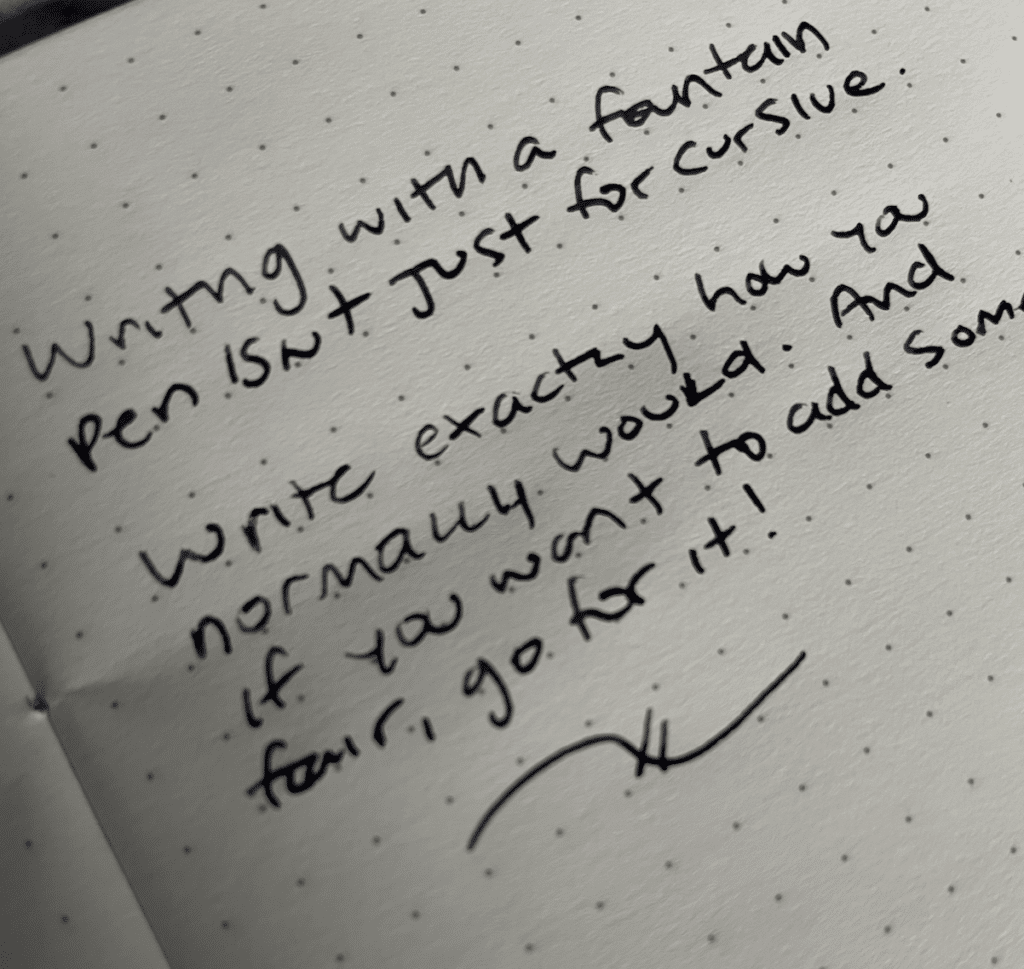 Writing with a fountain
pen isn't just for cursive.
Write exactly how you
normally would. And
if you want to add some
fair, go for it!